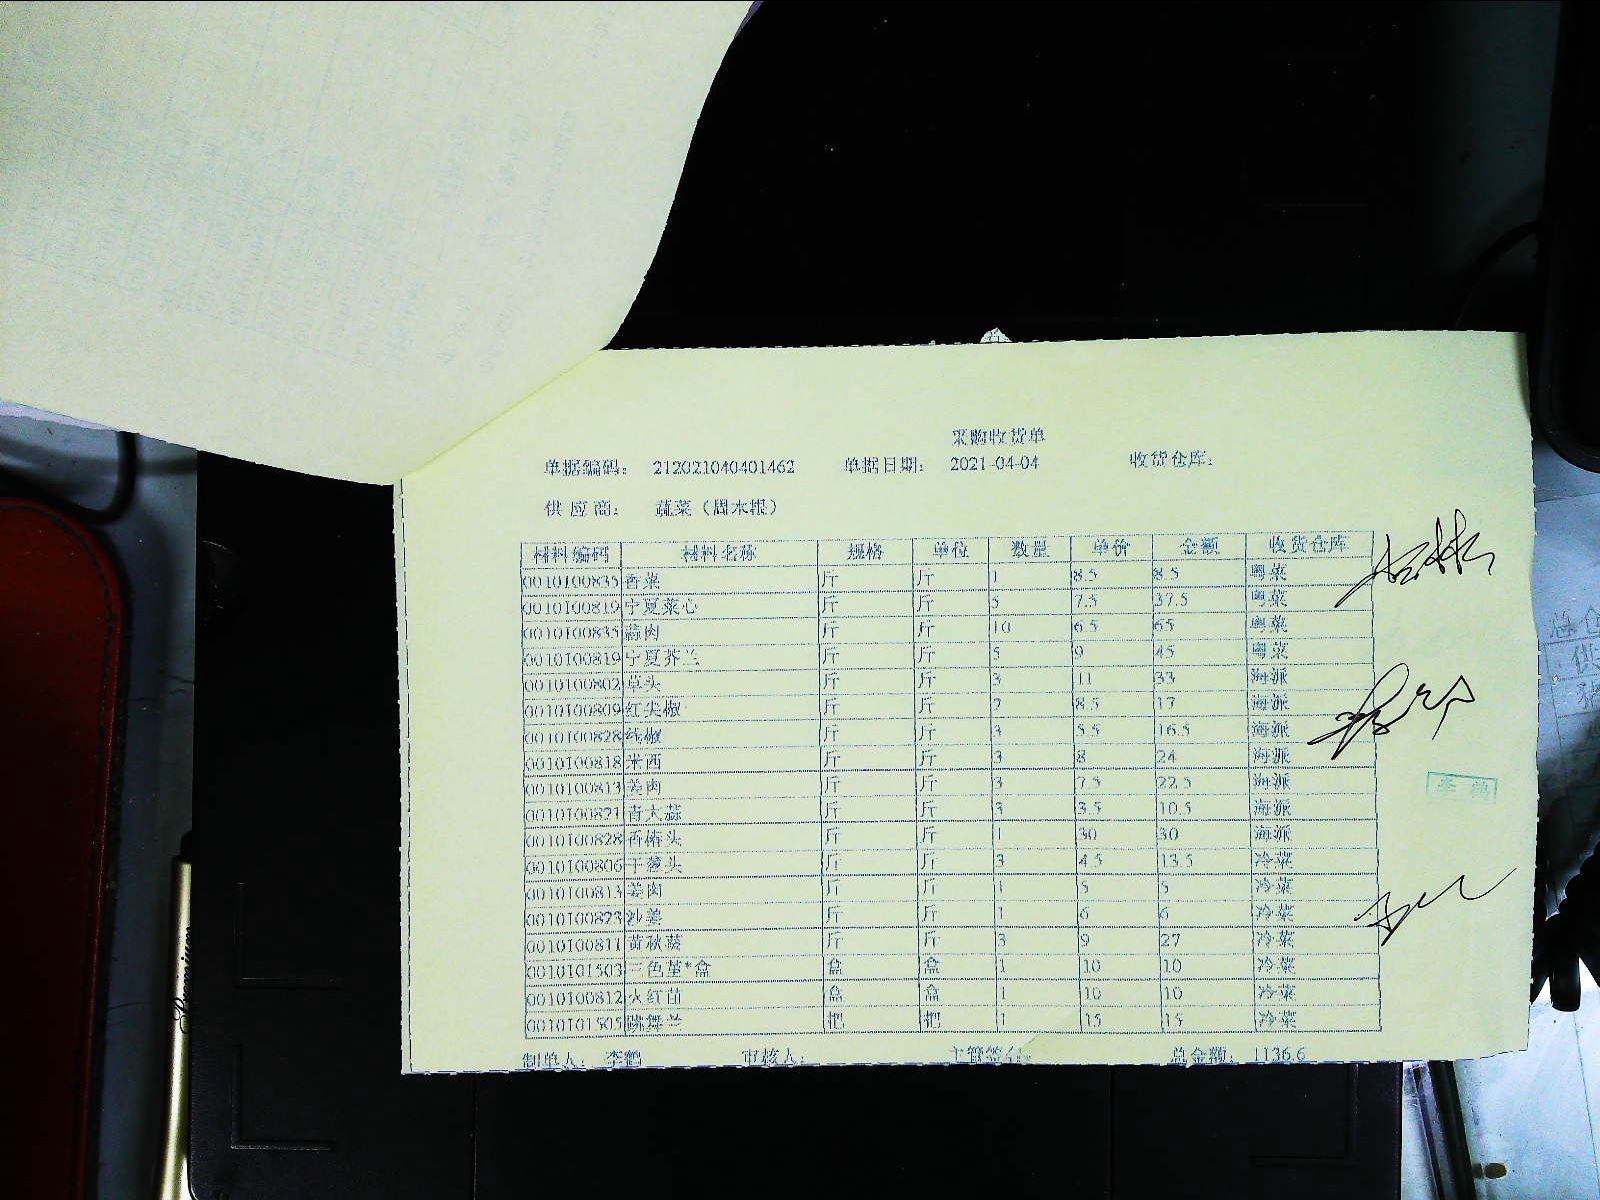 采购收货单
单据编码： 212021040401462 单据日期： 2021-04-04 收货仓库：
供 应 商： 蔬菜（周木根）
材料编码 材料名称 规格 单位 数量 单价 金额 收货仓库
0010100835 香菜 斤 斤 1 8.5 8.5 粤菜
0010100819 宁夏菜心 斤 斤 5 7.5 37.5 粤菜
0010100835 蒜肉 斤 斤 10 6.5 65 粤菜
0010100819 宁夏芥兰 斤 斤 5 9 45 粤菜
0010100802 草头 斤 斤 3 11 33 海派
0010100809 红尖椒 斤 斤 2 8.5 17 海派
0010100828 线椒 斤 斤 3 5.5 16.5 海派
0010100818 米西 斤 斤 3 8 24 海派
0010100813 姜肉 斤 斤 3 7.5 22.5 海派
0010100821 青大蒜 斤 斤 3 3.5 10.5 海派
0010100828 香椿头 斤 斤 1 30 30 海派
0010100806 干葱头 斤 斤 3 4.5 13.5 冷菜
0010100813 姜肉 斤 斤 1 5 5 冷菜
0010100823 沙姜 斤 斤 1 6 6 冷菜
0010100811 黄秋葵 斤 斤 3 9 27 冷菜
0010101503 三色堇*盒 盒 盒 1 10 10 冷菜
0010100812 火红苗 盒 盒 1 10 10 冷菜
0010101505 跳舞兰 把 把 1 15 15 冷菜
制单人： 李鹤 审核人： 主管签字： 总金额： 1136.6